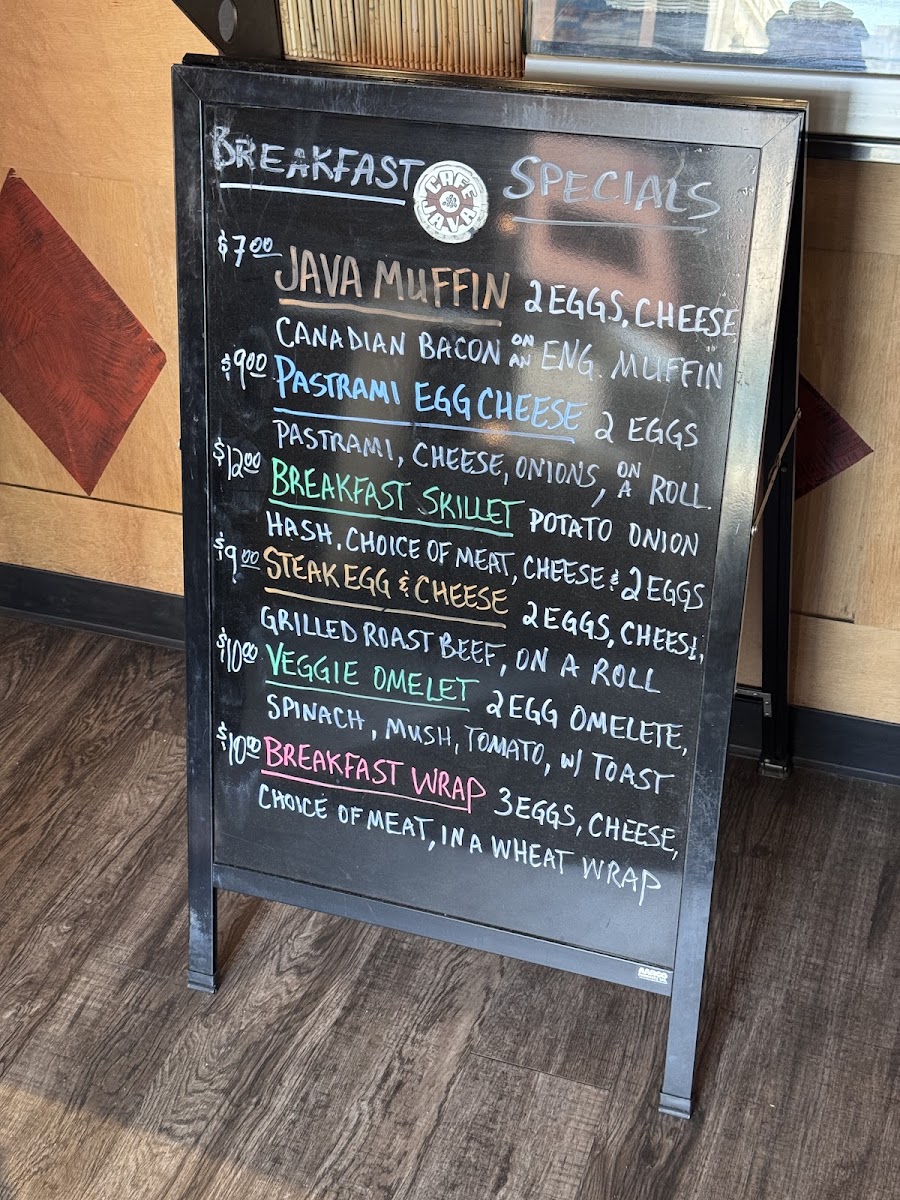 BREAKFAST CAFE JAVA SPECIALS
$7.00 JAVA MUFFIN 2 EGGS, CHEESE
CANADIAN BACON ON AN ENG. MUFFIN
$9.00 PASTRAMI EGG CHEESE 2 EGGS
PASTRAMI, CHEESE, ONIONS, ON A ROLL
$12.00 BREAKFAST SKILLET POTATO ONION
HASH, CHOICE OF MEAT, CHEESE & 2 EGGS
$9.00 STEAK EGG & CHEESE 2 EGGS, CHEESE,
GRILLED ROAST BEEF, ON A ROLL
$10.00 VEGGIE OMELET 2 EGG OMELETE,
SPINACH, MUSH, TOMATO, W/ TOAST
$10.00 BREAKFAST WRAP 3 EGGS, CHEESE,
CHOICE OF MEAT, IN A WHEAT WRAP
AARCO